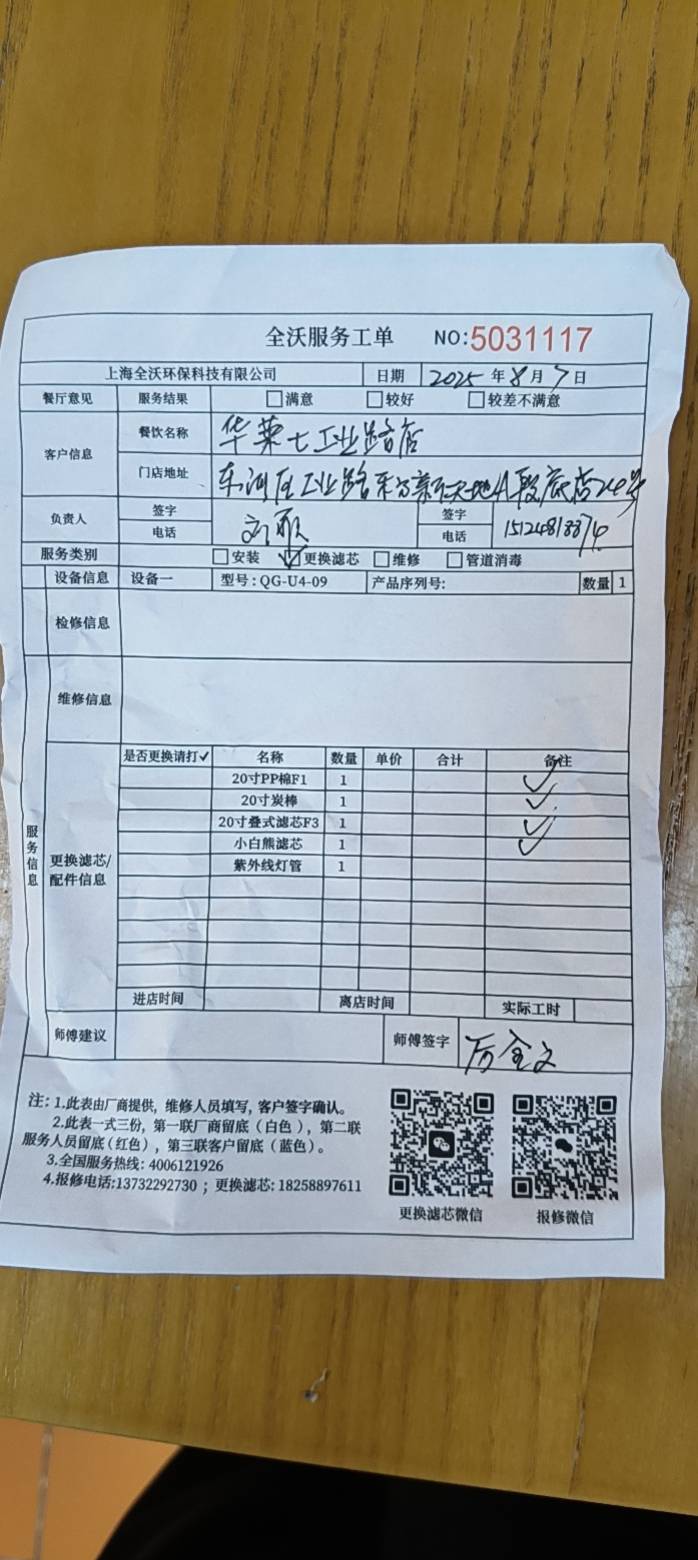 全沃服务工单 NO:5031117
上海全沃环保科技有限公司 日期 2025年8月7日
餐厅意见 服务结果 满意 较好 较差不满意
客户信息 餐饮名称 华莱士工业路店
门店地址 东河区工业路 新天地A段底店24号
负责人 签字 签字
电话 电话 15124818874
服务类别 安装 更换滤芯 维修 管道消毒
设备信息 设备一 型号:QG-U4-09 产品序列号: 数量 1
检修信息
维修信息
服务信息
更换滤芯/配件信息
是否更换请打✓ 名称 数量 单价 合计 备注
20寸PP棉F1 1 ✓
20寸炭棒 1 ✓
20寸叠式滤芯F3 1 ✓
小白熊滤芯 1 ✓
紫外线灯管 1
进店时间 离店时间 实际工时
师傅建议 师傅签字
注:1.此表由厂商提供,维修人员填写,客户签字确认。
2.此表一式三份,第一联厂商留底(白色),第二联
服务人员留底(红色),第三联客户留底(蓝色)。
3.全国服务热线:4006121926
4.报修电话:13732292730;更换滤芯:18258897611
更换滤芯微信 报修微信